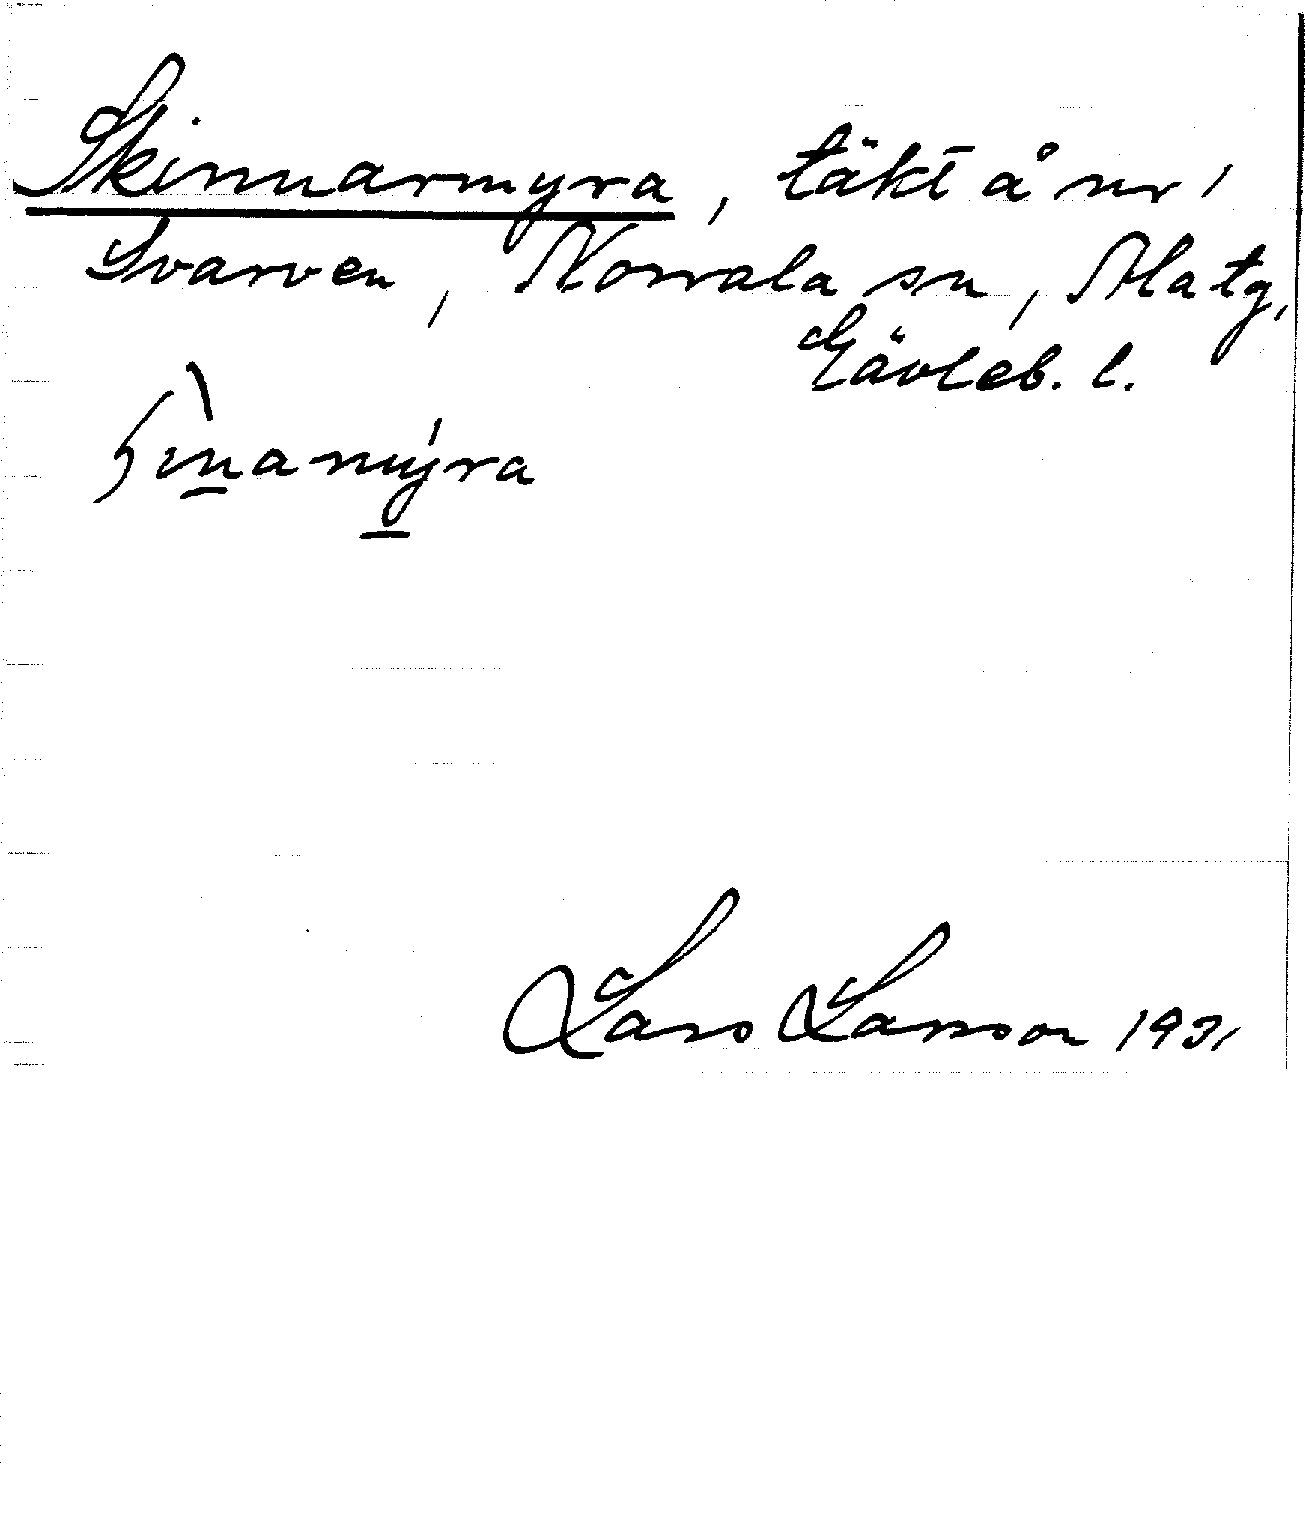 Skinnarmyra, täkt å nr 1
Svarven, Norrala sn, Ala tg,
Gävleb. l.
ʃìnamýra
Lars Larsson 1931